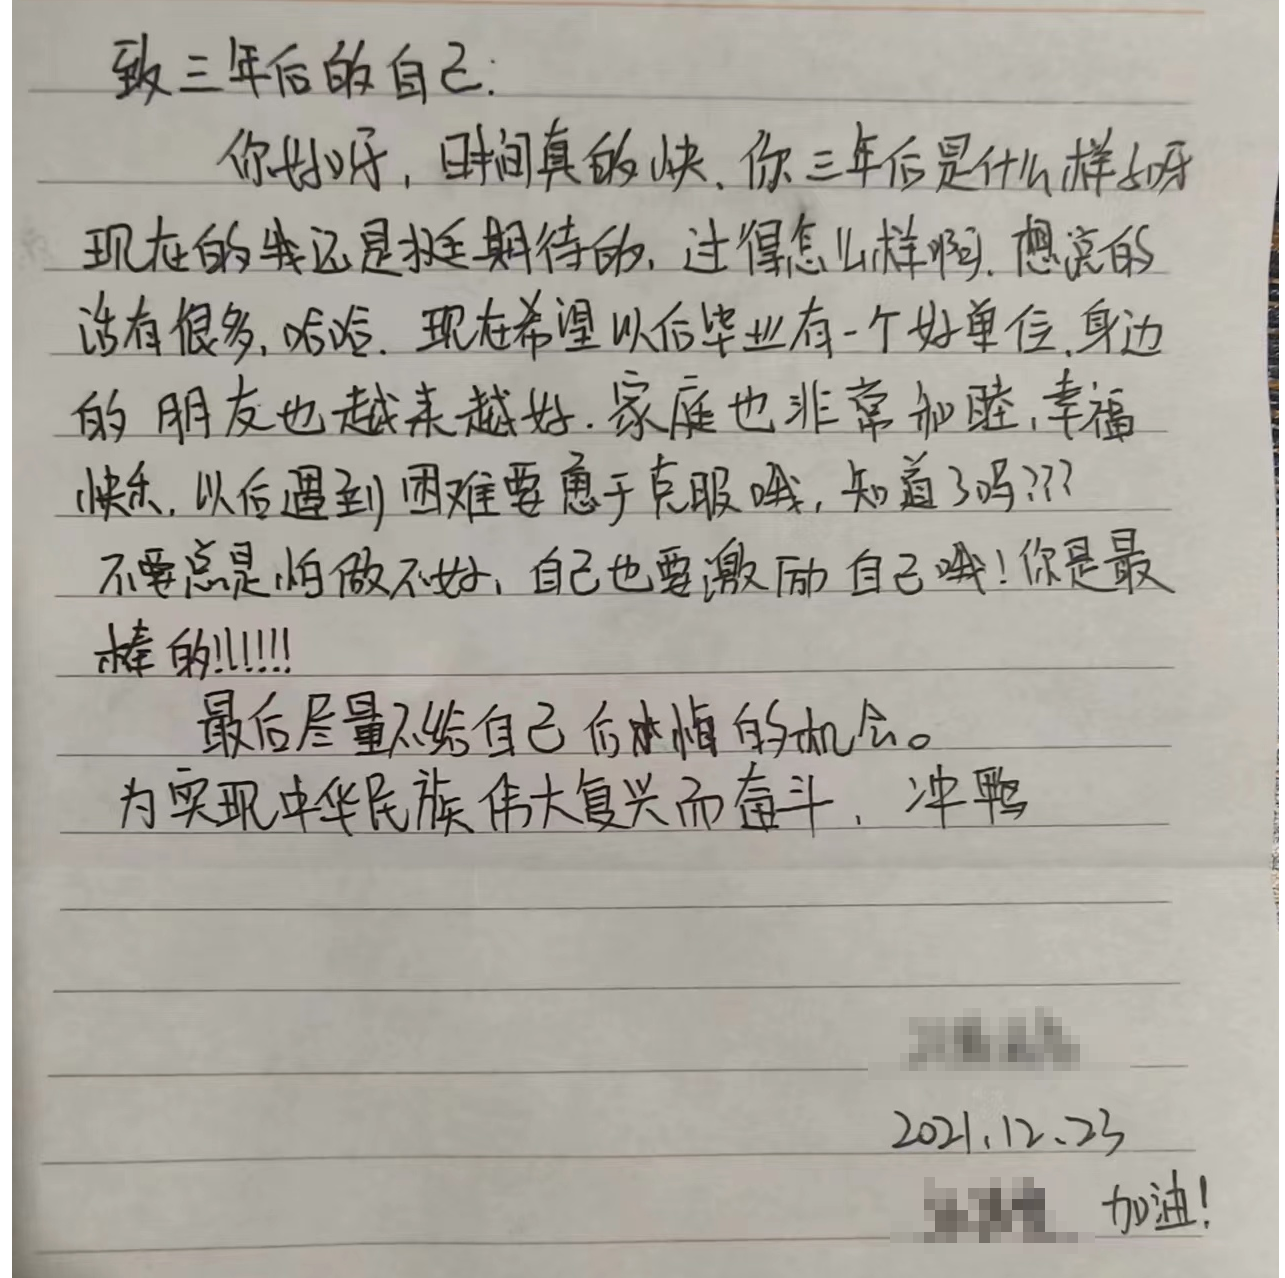 致三年后的自己:
你好呀,时间真的快、你三年后是什么样子呀
现在的我还是挺期待的,过得怎么样啊,想说的
话有很多,哈哈.现在希望以后毕业有一个好单位,身边
的朋友也越来越好.家庭也非常和睦,幸福
快乐,以后遇到困难要勇于克服哦,知道了吗???
不要总是怕做不好,自己也要激励自己哦!你是最
棒的!!!!!!!
最后尽量不给自己后悔的机会。
为实现中华民族伟大复兴而奋斗,冲鸭
2021.12.23
加油!